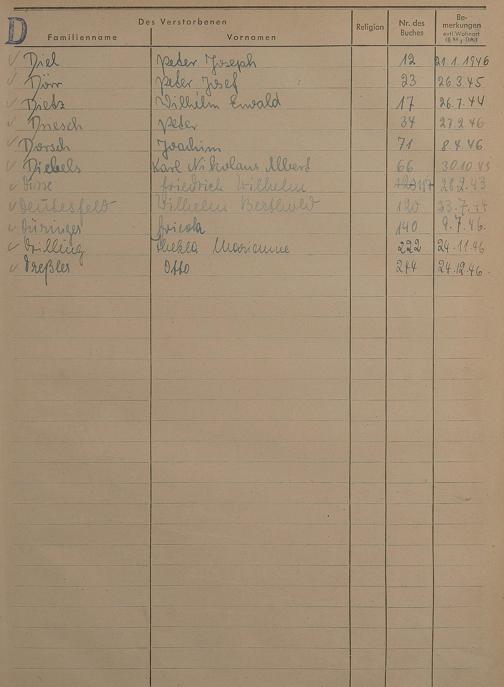 D
Des Verstorbenen
Familienname Vornamen Religion Nr. des Buches Be-merkungen
Diel Peter Joseph 12 21.1.1946
Dörr Peter Josef 23 26.3.45
Dietz Wilhelm Ewald 17 26.7.44
Driesch Peter 34 27.2.46
Dorsch Joachim 71 8.4.46
Diebels Karl Nikolaus Albert 66 30.10.45
Friedrich Wilhelm 28.2.43
Deutesfeld Wilhelm Berthold 120
Düringer 140 9.7.46.
Drilling Marianne 222 24.11.46
Dreßler Otto 244 24.12.46.